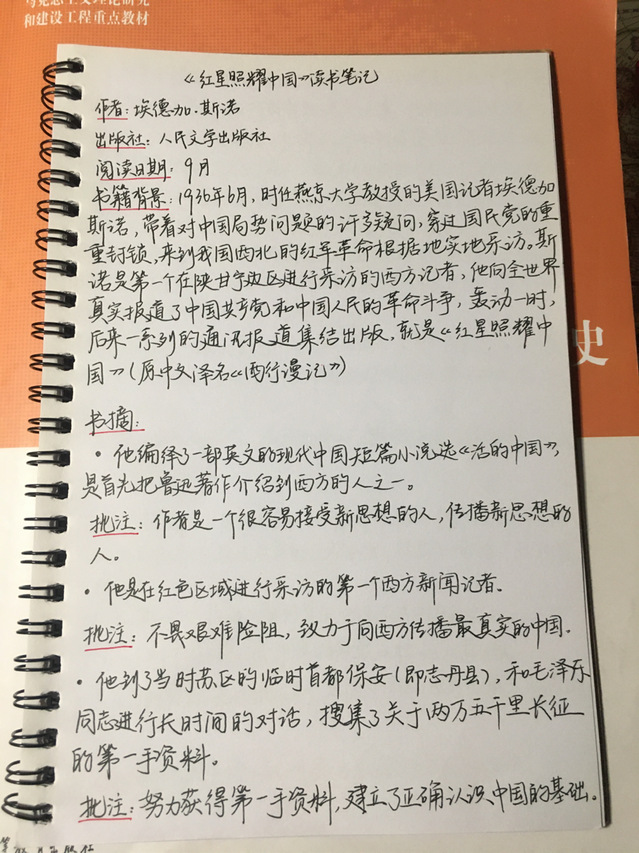 和建设工程重点教材
《红星照耀中国》读书笔记
作者：埃德加·斯诺
出版社：人民文学出版社
阅读日期：9月
书籍背景：1936年6月，时任燕京大学教授的美国记者埃德加
斯诺，带着对中国局势问题的许多疑问，穿过国民党的重
重封锁，来到我国西北的红军革命根据地实地采访。斯
诺是第一个在陕甘宁边区进行采访的西方记者，他向全世界
真实报道了中国共产党和中国人民的革命斗争，轰动一时，
后来一系列的通讯报道集结出版，就是《红星照耀中
国》（原中文译名《西行漫记》）
史
书摘：
· 他编译了一部英文的现代中国短篇小说选《活的中国》，
是首先把鲁迅著作介绍到西方的人之一。
批注：作者是一个很容易接受新思想的人，传播新思想的
人。
· 他是在红色区域进行采访的第一个西方新闻记者。
批注：不畏艰难险阻，致力于向西方传播最真实的中国.
· 他到了当时苏区的临时首都保安（即志丹县），和毛泽东
同志进行长时间的对话，搜集了关于两万五千里长征
的第一手资料。
批注：努力获得第一手资料，建立了正确认识中国的基础。